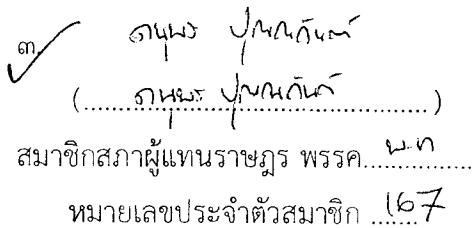 ดนุพร ปุณณกันต์
๓.
(ดนุพร ปุณณกันต์)
สมาชิกสภาผู้แทนราษฎร พรรค พท
หมายเลขประจำตัวสมาชิก 167